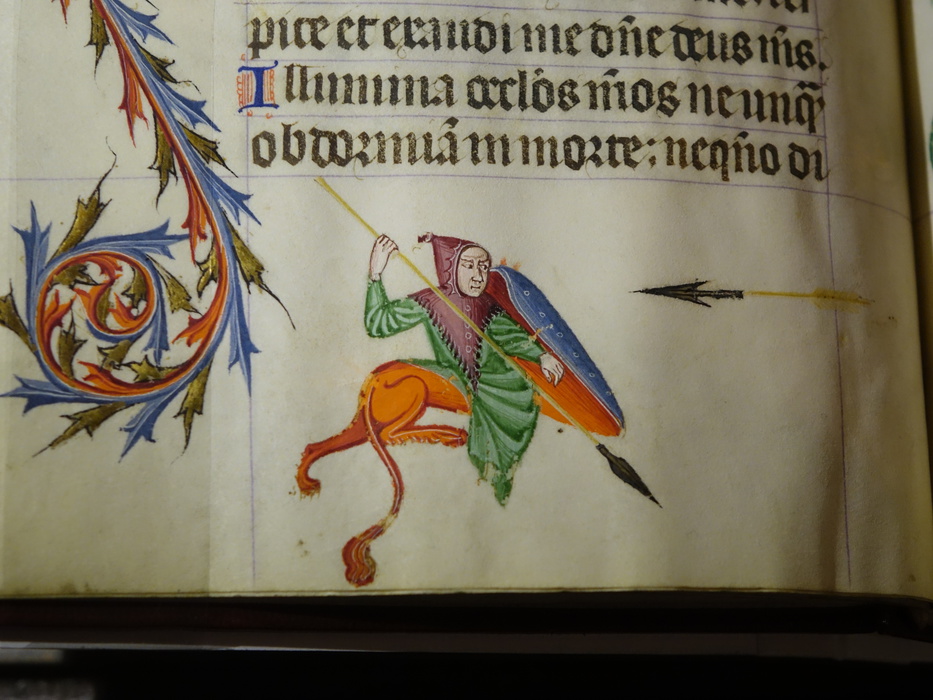 pice et exaudi me dn̄e deus m̄s.
Illumina oc̄los m̄os ne unq̄
obdormiā in morte: neqn̄o di